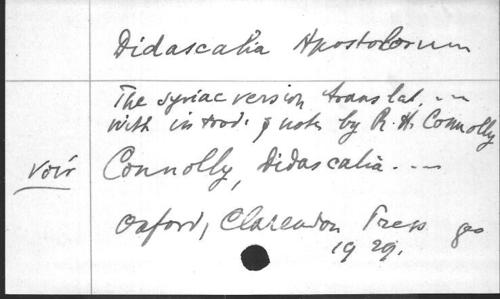 Didascalia Apostolorum
The syriac version translat. ---
with introd. & notes by R. H. Connolly
voir Connolly, Didascalia. ---
Oxford, Clarendon Press
1929.